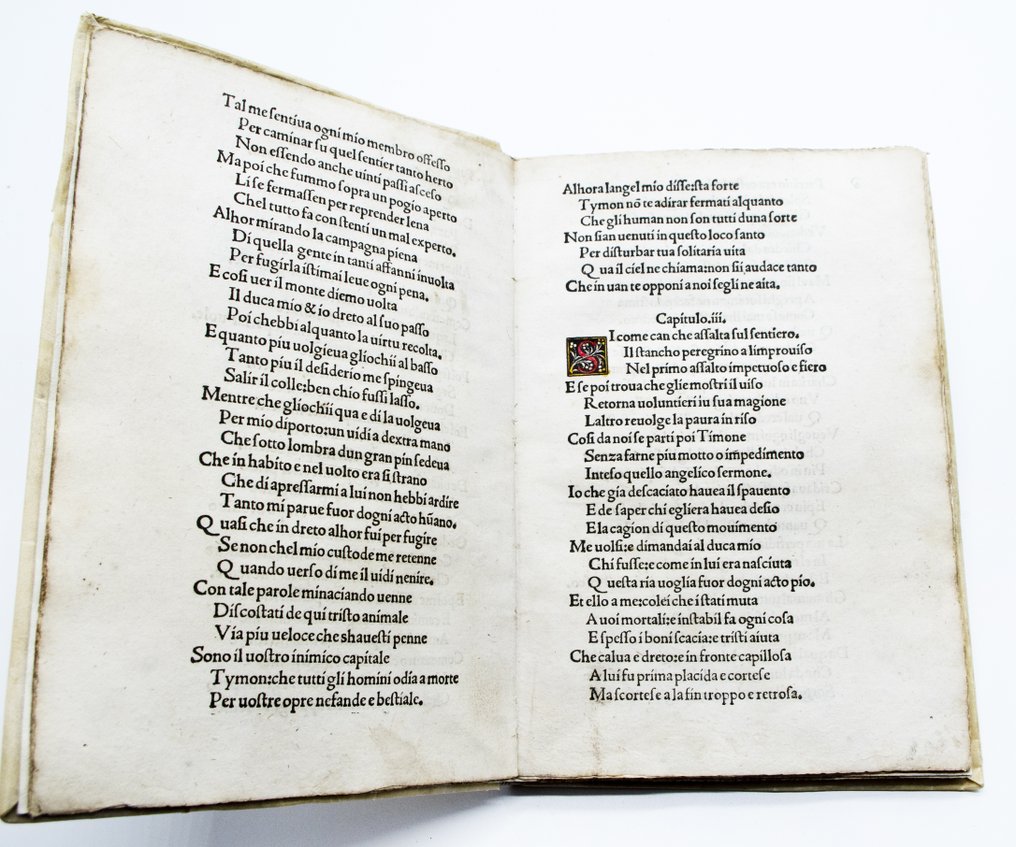 Tal me ſentiua ogni mio membro offeſſo
Per caminar ſu quel ſentier tanto herto
Non eſſendo anche uinti paſſi aſceſo
Ma poi che fummo ſopra un pogio aperto
Li ſe fermaſſen per reprender lena
Chel tutto fa conſtenti un mal experto.
Alhor mirando la campagna piena
Di quella gente in tanti affanni inuolta
Per fugirla iſtimai leue ogni pena.
E coſi uer il monte diemo uolta
Il duca mio & io dreto al ſuo paſſo
Poi chebbi alquanto la uirtu recolta.
Equanto piu uolgieua gliochii al baſſo
Tanto piu il deſiderio me ſpingeua
Salir il colle:ben chio fuſſi laſſo.
Mentre che gliochiī qua e di la uolgeua
Per mio diporto:un uidi a dextra mano
Che ſotto lombra dun gran pin ſedeua
Che in habito e nel uolto era ſi ſtrano
Che di apreſſarmi a lui non hebbi ardire
Tanto mi parue fuor dogni acto hūano.
Quaſi che in dreto alhor fui per fugire
Se non chel mio cuſtode me retenne
Quando uerſo di me il uidi nenire.
Con tale parole minaciando uenne
Diſcoſtati de qui triſto animale
Via piu ueloce che shaueſti penne
Sono il uoſtro inimico capitale
Tymon:che tutti gli homini odia a morte
Per uoſtre opre nefande e beſtiale.
Alhora langel mio diſſe:ſta forte
Tymon nō te adirar fermati alquanto
Che gli human non ſon tutti duna ſorte
Non ſian uenuti in queſto loco ſanto
Per diſturbar tua ſolitaria uita
Qua il ciel ne chiama:non ſii audace tanto
Che in uan te opponi a noi ſegli ne aita.
Capitulo.iii.
SI come can che aſſalta ſul ſentiero.
Il ſtancho peregrino a limprouiſo
Nel primo aſſalto impetuoſo e fiero
E ſe poi troua che glie moſtri il uiſo
Retorna uoluntieri iu ſua magione
Laltro reuolge la paura in riſo
Coſi da noi ſe parti poi Timone
Senza farne piu motto o impedimento
Inteſo quello angelico ſermone.
Io che gia deſcaciato hauea il ſpauento
E de ſaper chi egliera hauea deſio
E la cagion di queſto mouimento
Me uolſi:e dimandai al duca mio
Chi fuſſe:e come in lui era naſciuta
Queſta ria uoglia fuor dogni acto pio.
Et ello a me:colei che i ſtati muta
A uoi mortali:e inſtabil fa ogni coſa
E ſpeſſo i boni ſcacia:e triſti aiuta
Che calua e dreto:e in fronte capilloſa
A lui fu prima placida e corteſe
Ma ſcorteſe a la fin troppo e retroſa.